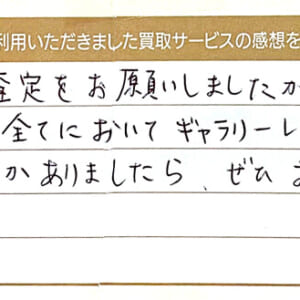 利用いただきました買取サービスの感想を
査定をお願いしましたが
全てにおいてギャラリーレ
がありましたら、ぜひ